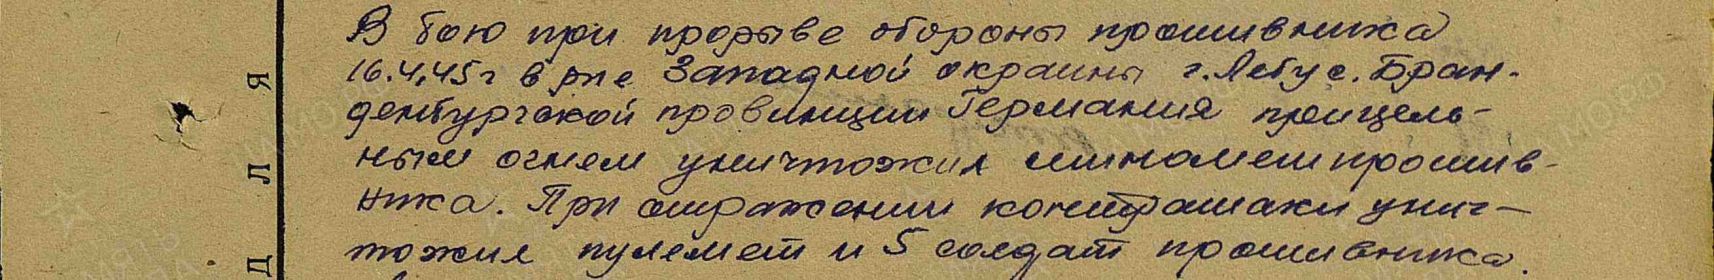 В бою при прорыве обороны противника
16.4.45г в р-не Западной окраины г. Лебус. Бран-
денбургской провинции Германия прицель-
ным огнем уничтожил миномет против-
ника. При отражении контратаки унич-
тожил пулемет и 5 солдат противника.
Д Л Я